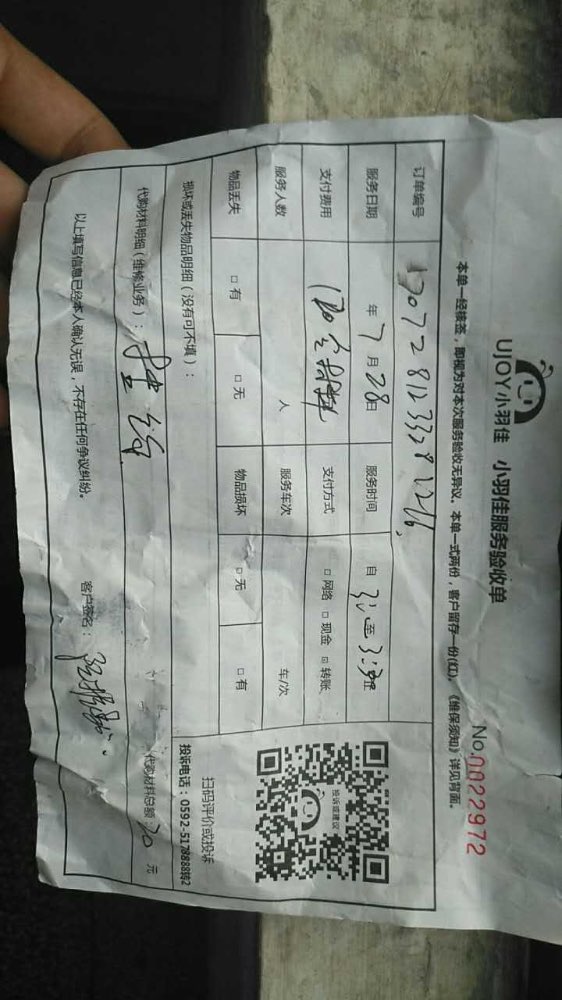 UJOY小羽佳 小羽佳服务验收单
No.0022972
本单一经核签，即视为对本次服务验收无异议。本单一式两份，客户留存一份(红)。《维保须知》详见背面。
订单编号
服务日期 年 7 月 28 日 服务时间 自
支付费用 支付方式 □ 网络 □ 现金 转账
服务人数 人 服务车次 车/次
物品丢失 □ 有 □ 无 物品损坏 □ 无 □ 有
损坏或丢失物品明细（没有可不填）：
代购材料明细（维修业务）： 代购材料总额： 元
投诉或建议
扫码评价或投诉
投诉电话：0592-5178888转2
以上填写信息已经本人确认无误，不存在任何争议纠纷。 客户签名：